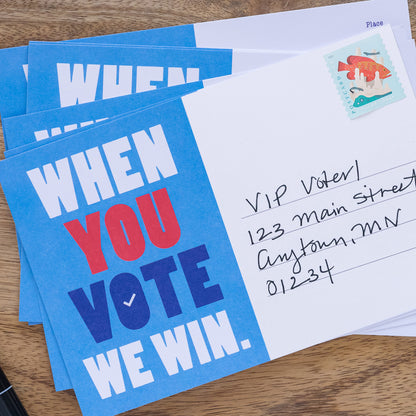 Place
WHEN
WHEN
WHEN
YOU
VOTE
WE WIN.
VIP Voter!
123 Main Street
Anytown, MN
01234